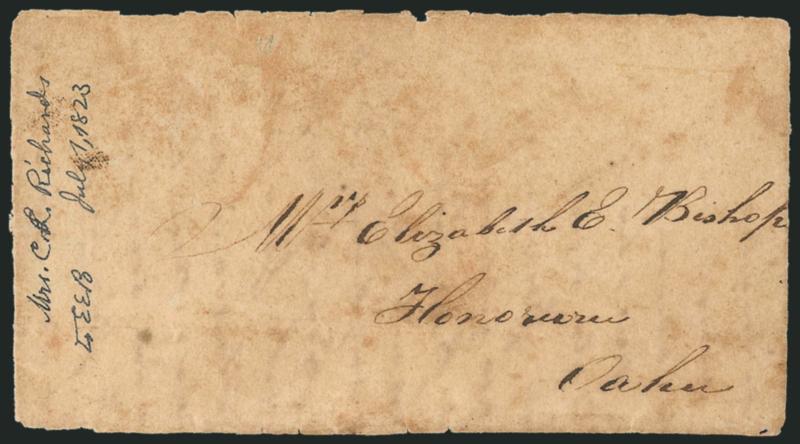 Mrs. C. R. Richards
July 7, 1823
to EEB
Mrs Elizabeth E. Bishop
Honoruru
Oahu